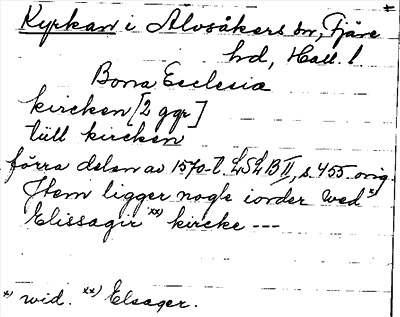 Kyrkan i Alvsåkers sn, Fjäre
hrd, Hall. l
Bona Ecclesia
kircken [2 ggr]
tüll kircken
förra delen av 1570-t. LSLB II, s. 455 orig.
Jtem ligger nogle iorder wed x)
Elissagir xx) kircke ---
x) wid. xx) Elsager.